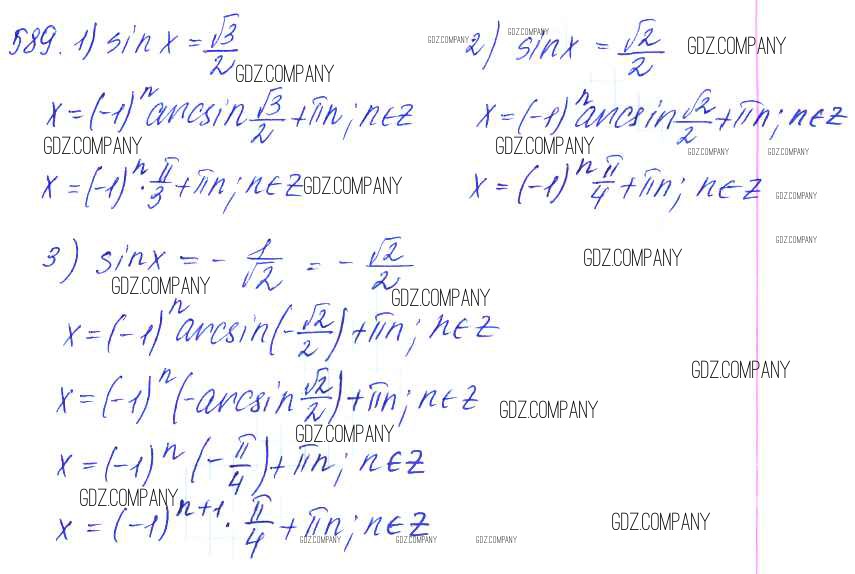 589. 1) sin x = √3/2
GDZ.COMPANY
x = (-1)^n arcsin √3/2 + πn; n∈Z
GDZ.COMPANY
x = (-1)^n · π/3 + πn; n∈Z
GDZ.COMPANY
GDZ.COMPANY
GDZ.COMPANY
2) sin x = √2/2
GDZ.COMPANY
x = (-1)^n arcsin √2/2 + πn; n∈Z
GDZ.COMPANY
GDZ.COMPANY
GDZ.COMPANY
x = (-1)^n π/4 + πn; n∈Z
GDZ.COMPANY
GDZ.COMPANY
3) sin x = - 1/√2 = - √2/2
GDZ.COMPANY
GDZ.COMPANY
GDZ.COMPANY
x = (-1)^n arcsin(-√2/2) + πn; n∈Z
GDZ.COMPANY
x = (-1)^n (-arcsin √2/2) + πn; n∈Z
GDZ.COMPANY
GDZ.COMPANY
x = (-1)^n (-π/4) + πn; n∈Z
GDZ.COMPANY
x = (-1)^{n+1} · π/4 + πn; n∈Z
GDZ.COMPANY
GDZ.COMPANY
GDZ.COMPANY
GDZ.COMPANY